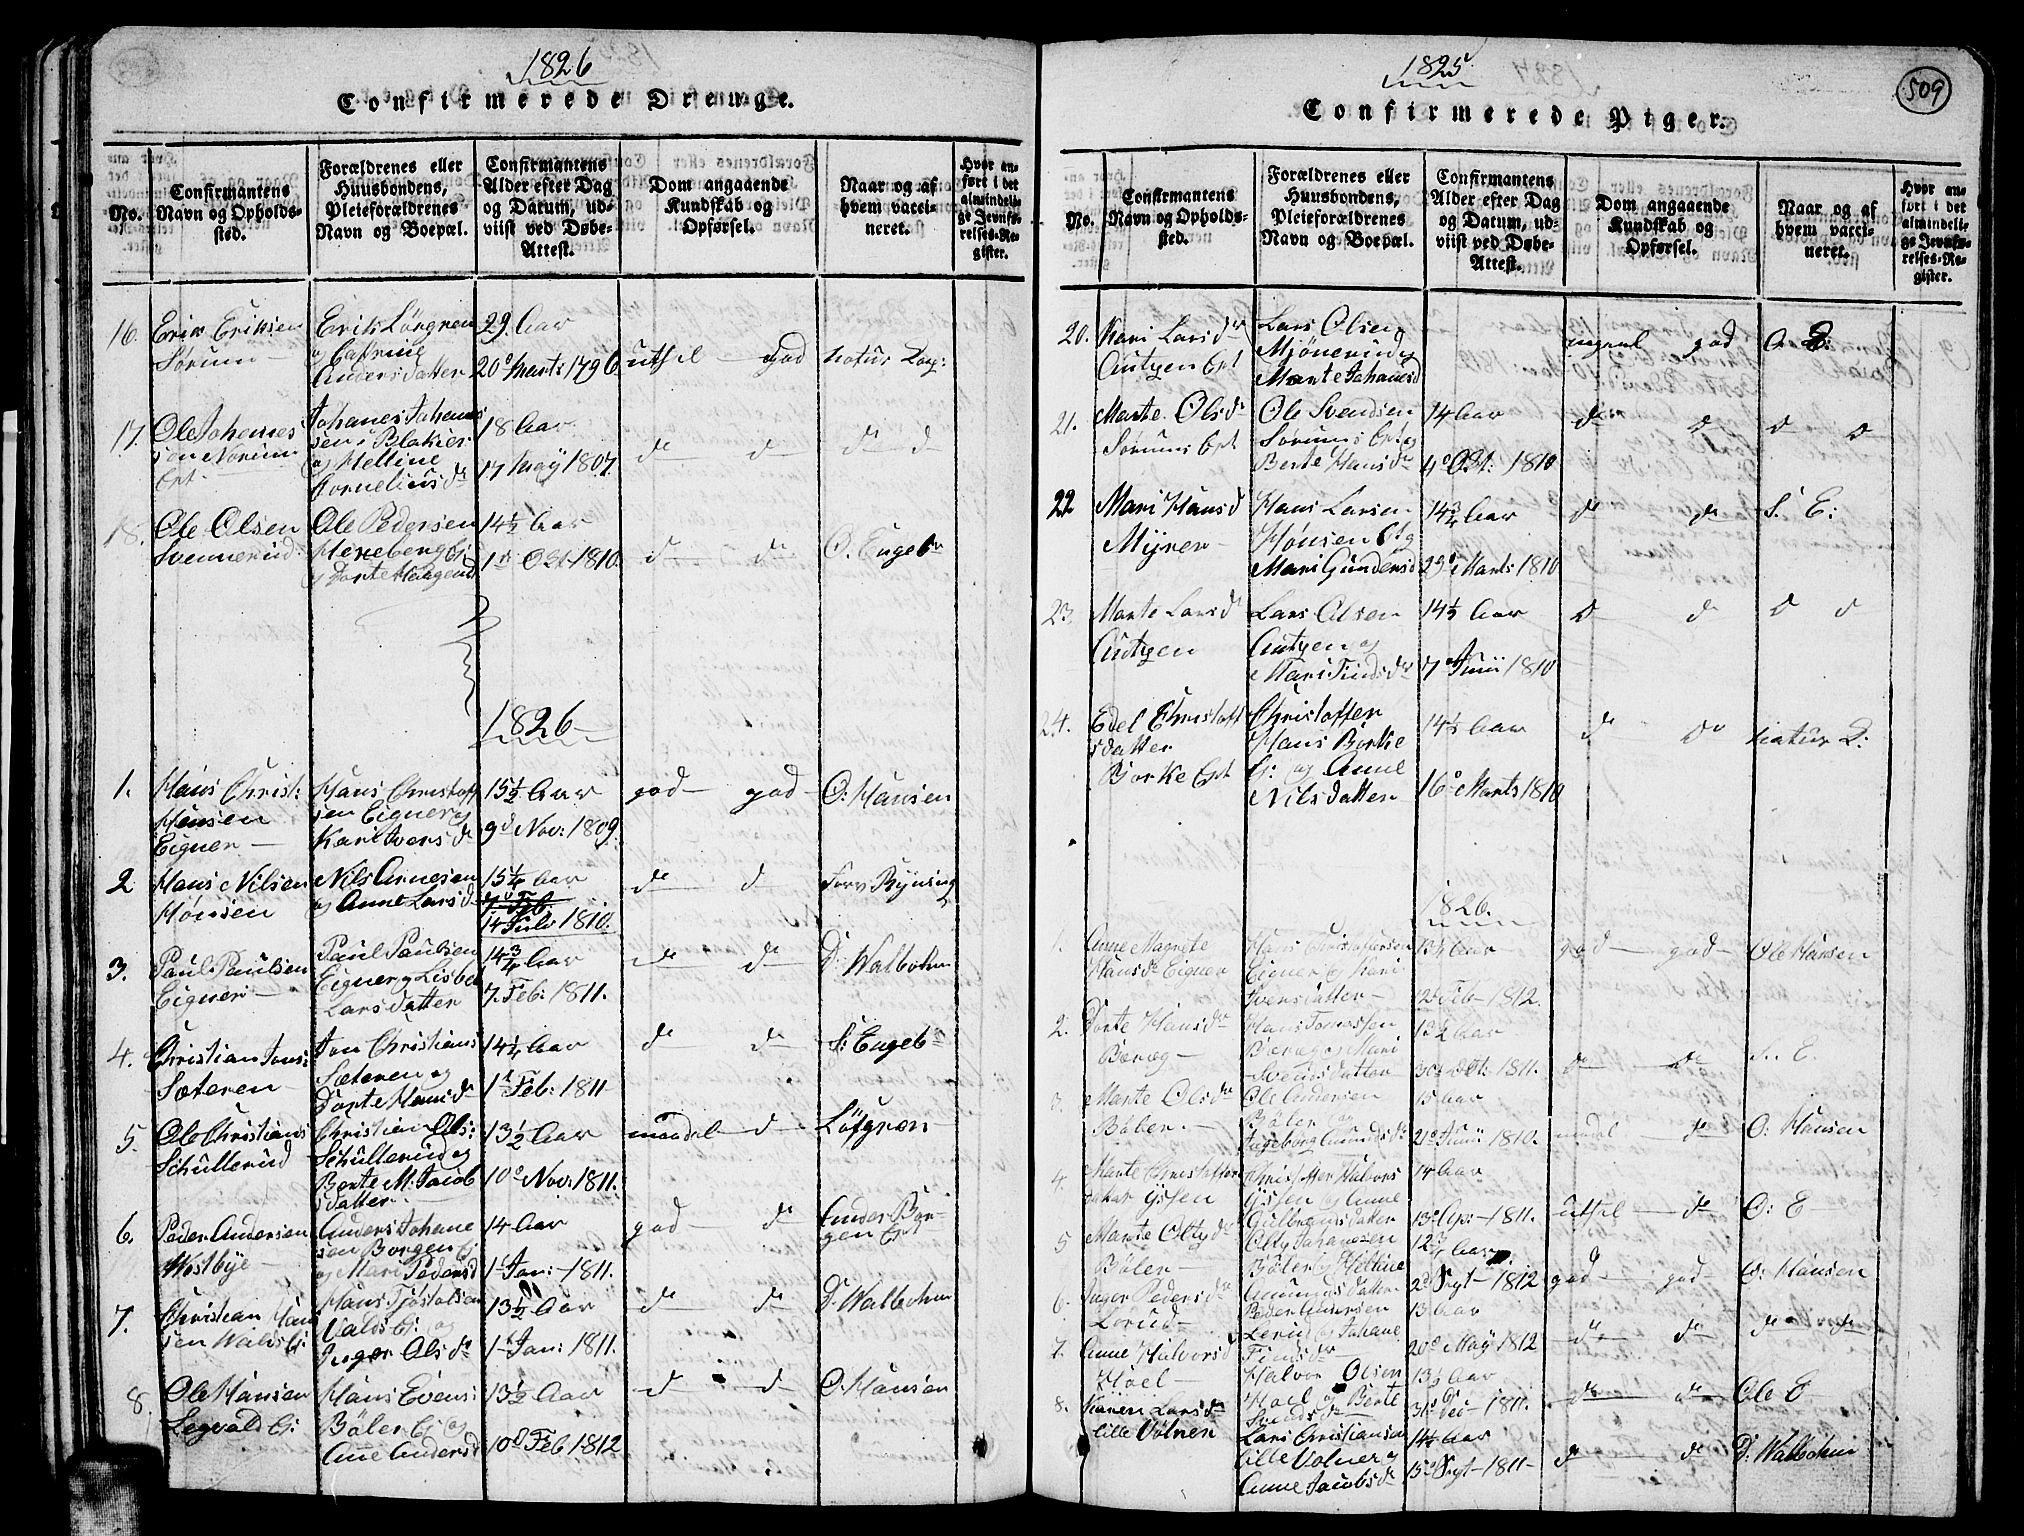 1826
Confirmerede Drenge.
No.
Confirmantens
Navn og Opholds-
sted.
Forældrenes eller
Huusbondens,
Pleieforældrenes
Navn og Boepæl.
Confirmantens
Alder efter Dag
og Datum, ud-
viist ved Døbe-
Attest.
Dom angaaende
Kundskab og
Opførsel.
Naar og af
hvem vacci-
neret.
Hvor an-
ført i det
almindeli-
ge Jevnfø-
relses-Re-
gister.
16. Erik Eriksen
Sørum
Erik Lörgren
og Catrine
Anders datter
29 Aar
20de Marts 1796
utsil god
natur Kop:
17. Ole Johannes
sen Sörum
Ept.
Johanes Johannes
sen i Blakier
og Helline
Cornelius dr
18 Aar
17 May 1807.
do do
do do
18. Ole Olsen
Svennerud
Ole Pedersen
Hexeberg Ei
og Dorte Haagensd
14½ Aar
1st Oct 1810.
do do
O. Engebr
1826
1. Hans Christ:
Hansen
Eigner
Hans Christoff
sen Eigner og
Kari Ivers dr
15½ Aar
9d Nov: 1809.
god god
O: Hansen
2 Hans Nilsen
Hönsen
Nils Arnesen
og Anne Lars d
15¼ Aar
7 Feb:
14 Juli 1810.
do do
Forv Ryning
3. Paul Paulsen
Eigner
Paul Paulsen
Eigner og Lisbet
Lars datter
14¾ Aar
7. Feb: 1811.
do do
D: Walbohm
4. Christian Jons:
Sæteren
Jon Christians
Sæteren og
Dorte Hans dr
14¼ Aar
1t Feb: 1811
do do
S: Engebr
5. Ole Christians
Schullerud
Christian Ols:
Schullerud og
Berte M: Jacob
sdatter
13½ Aar
10de Nov: 1811.
maadel do
Löfgren
6. Peder Andersen
Westbye
Anders Johane
sen Borgen Ei
og Mari Pedersd
14 Aar
1t Jan: 1811.
god do
Anders Bor-
gen Ept
7. Christian Han
sen Walds Ei:
Hans Tjostolsen
Valds Ei: og
Inger Ols dr
13½ Aar
1t Jan: 1811.
do do
D: Walbohm
8. Ole Hansen
Legvald Ei:
Hans Evens:
Böler Ei og
Ane Andersd
13½ Aar
10d Feb 1812
do do
O: Hansen
1825
509
Confirmerede Piger.
No.
Confirmantens
Navn og Opholds-
sted.
Forældrenes eller
Huusbondens,
Pleieforældrenes
Navn og Boepæl.
Confirmantens
Alder efter Dag
og Datum, ud-
viist ved Døbe-
Attest.
Dom angaaende
Kundskab og
Opførsel.
Naar og af
hvem vacci-
neret.
Hvor an-
ført i det
almindeli-
ge Jevnfø-
relses-Re-
gister.
20. Kari Lars dr
Autgen Ept
Lars Olsen
Mjönerud og
Marte Johanesd
god
O E:
21. Marte Ols dr
Sörums Ept
Ole Svendsen
Sörums Ept og
Berte Hans dr
14 Aar
4de Oct: 1810
do do
do do
22 Mari Hans d
Myrer
Hans Larsen
Hönsen Ei og
Mari Gundersd
14¾ Aar
29d Marts 1810
do do
S. E:
23 Marte Lars dr
Autgen
Lars Olsen
Autgen og
Mari Finds dr
14½ Aar
7 Juni 1810
do do
do do
24. Edel Christoff
sdatter
Bjorke Ept
Christoffer
Hans Borke
Ei: og Anne
Nils datter
14½ Aar
16de Marts 1810
do do
natur K:
1826.
1. Anne Magrete
Hans dr Eigner
Hans Christoffersen
Eigner og Kari
Ivers datter
13½ Aar
12d Feb 1812.
god god
Ole Hansen
2. Dorte Hans dr
Bæreg
Hans Tomessen
Bæreg og Mari
Svends datter
13½ Aar
30d Oct: 1811.
do do
S. E.
3. Marte Ols dr
Böler
Ole Andersen
Böler og
Ingeborg Amunds dr
15 Aar
21de Juni 1810.
maadel do
O: Hansen
4 Marte Christoffer
datter Ijssen
Christoffer Halvors
Ijssen og Anne
Gulbrands datter
14 Aar
13de Apr: 1811.
utsil do
O: E
5 Marte Oltys dr
Böler
Olty Johanesen
Böler og Helline
Amunds datter
12¾ Aar
2d Sept 1812
god god
O: Hansen
6. Inger Peders dr
Lerud
Peder Andersen
Lerud og Johane
Finds dr
13 Aar
20de May 1812
do do
do do
7. Anne Halvors d
Hoel
Halvor Olsen
Hoel og Berte
Svends dr
13½ Aar
31de Dec 1811.
do do
Ole E
8. Karen Lars dr
Lille Völner
Lars Christiansen
Lille Volner og
Anne Jacobs dr
14½ Aar
15de Sept 1811
do do
D: Walbohm